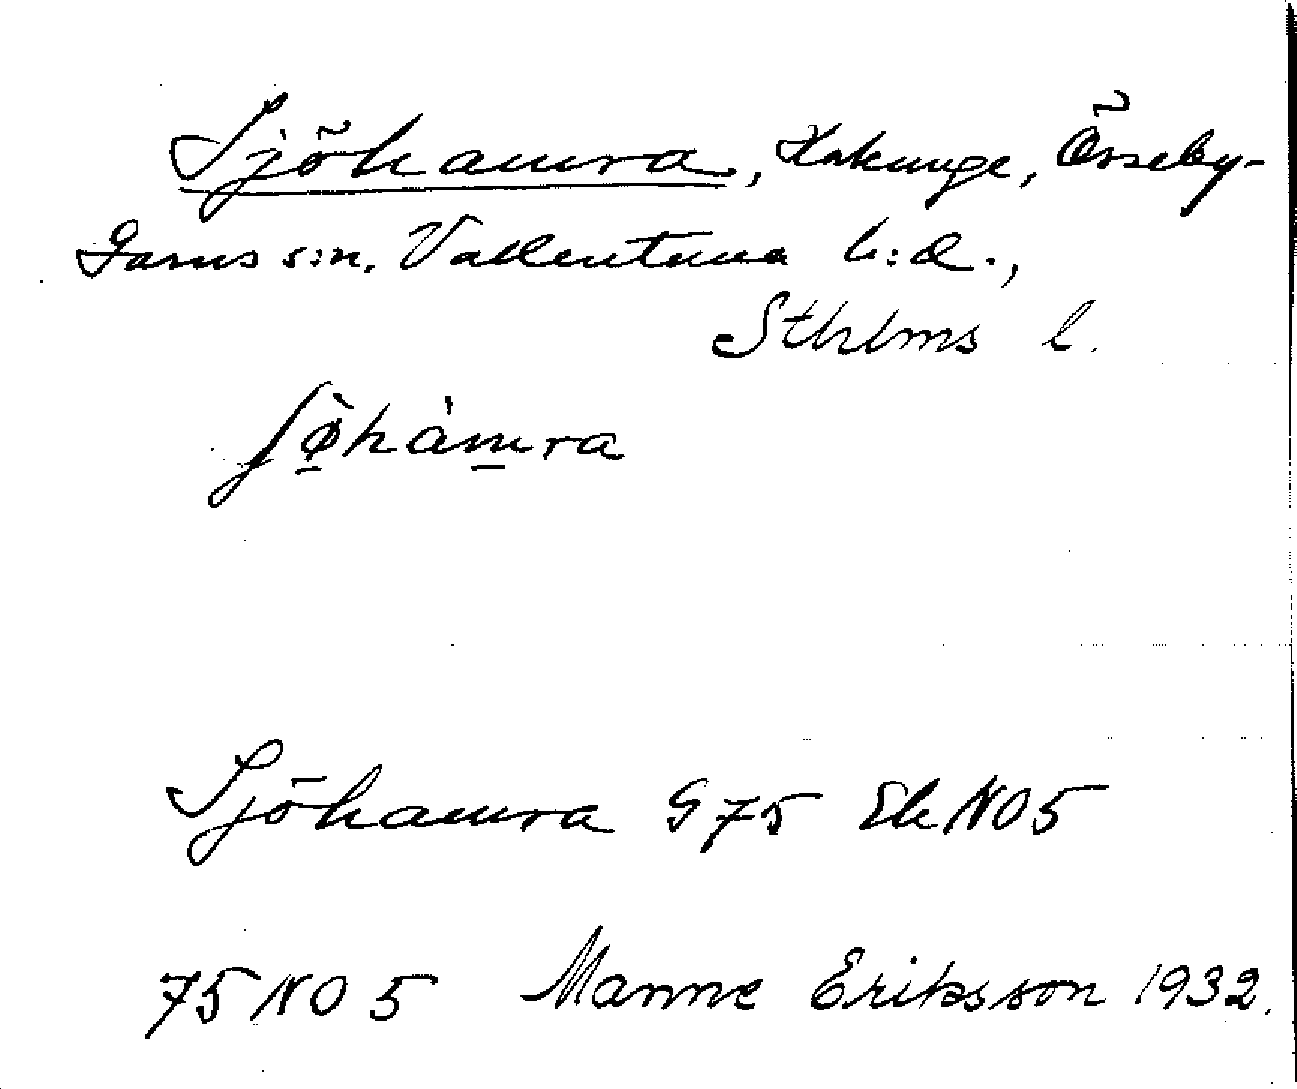 Sjöhamra, Hakunge, Össeby-
Garns s:n, Vallentuna h:d.,
Sthlms l.
ʃø̀hàmra
Sjöhamra G 75 Ek NO 5
75 NO 5 Manne Eriksson 1932.